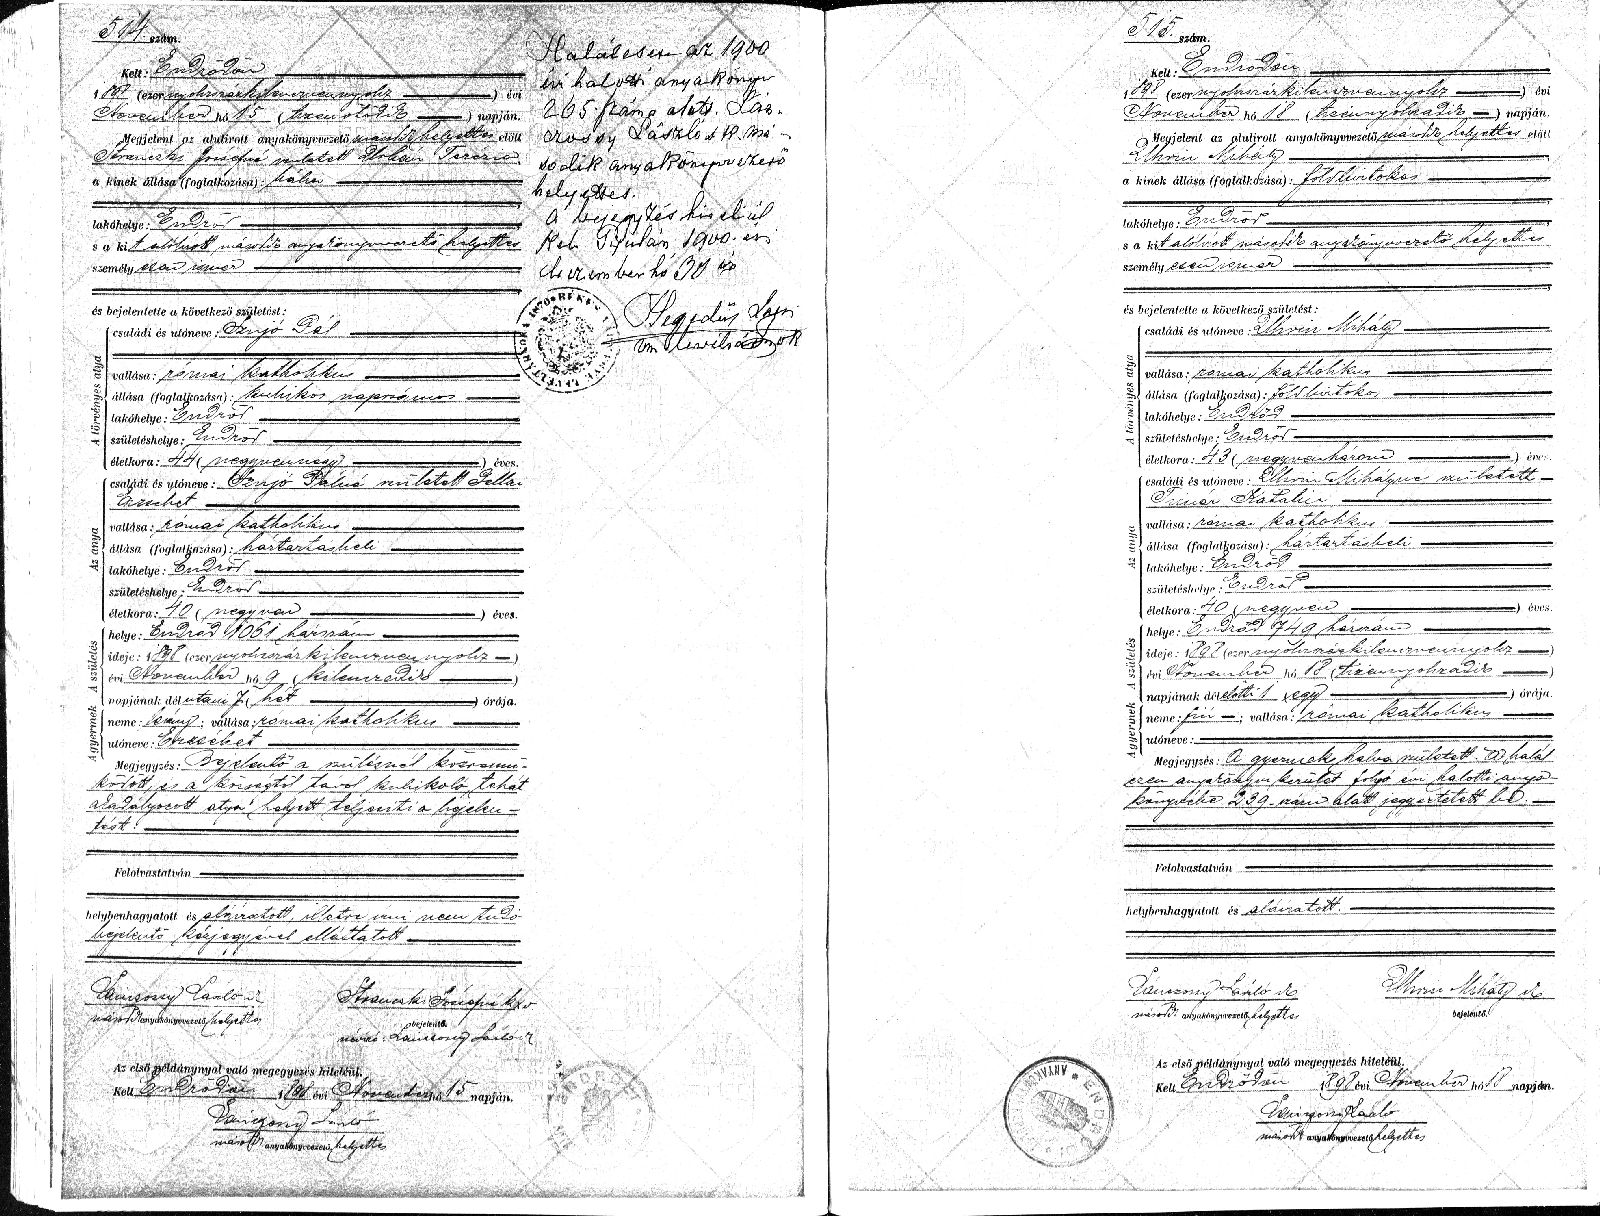 514. szám.
Kelt: Endrődön
1898 (ezernyolczszázkilenczvennyolcz) évi
November hó 15 (tizenötödik) napján.
Megjelent az alulirott anyakönyvvezető második helyettes előtt
született Terézia
a kinek állása (foglalkozása): bába
lakóhelye: Endrőd
s a kit alulirott második anyakönyvvezető helyettes
személyesen ismer
és bejelentette a következő születést:
A törvényes atya
családi és utóneve: Szujó Pál
vallása: római katholikus
állása (foglalkozása): kubikos napszámos
lakóhelye: Endrőd
születéshelye: Endrőd
életkora: 44 (negyvennégy) éves.
Az anya
családi és utóneve: Szujó Pálné született
Erzsébet
vallása: római katholikus
állása (foglalkozása): háztartásbeli
lakóhelye: Endrőd
születéshelye: Endrőd
életkora: 40 (negyven) éves.
A születés
helye: Endrőd 1061 házszám
ideje: 1898 (ezernyolczszázkilenczvennyolcz)
évi November hó 9 (kilenczedik)
napjának délutáni 7 (hét) órája.
A gyermek
neme: leány; vallása: római katholikus
utóneve: Erzsébet
Megjegyzés: Bejelentő a szülésnél közremü-
ködött, és a községtől távol kubikoló, tehát
akadályozott atya helyett teljesiti a bejelen-
tést.
Felolvastatván
helybenhagyatott és aláiratott, illetve irni nem tudó
bejelentő kézjegyével elláttatott
László sk
másod anyakönyvvezető helyettes
bejelentő.
névíró: László sk
Az első példánynyal való megegyezés hiteléül.
Kelt Endrődön 1898 évi November hó 15 napján.
László
másod anyakönyvvezető helyettes
Halálesete az 1900
évi halotti anyakönyv
265 száma alatt.
László s.k. má-
sodik anyakönyvvezető
helyettes.
A bejegyzés hiteléül
Kelt Gyulán 1900. évi
deczember hó 30
Hegedűs Lajos
vm levéltárnok
515. szám.
Kelt: Endrődön
1898 (ezernyolczszázkilenczvennyolcz) évi
November hó 18 (tizennyolczadik) napján.
Megjelent az alulirott anyakönyvvezető második helyettes előtt
Uhrin Mihály
a kinek állása (foglalkozása): földbirtokos
lakóhelye: Endrőd
s a kit alulirott második anyakönyvvezető helyettes
személyesen ismer
és bejelentette a következő születést:
A törvényes atya
családi és utóneve: Uhrin Mihály
vallása: római katholikus
állása (foglalkozása): földbirtokos
lakóhelye: Endrőd
születéshelye: Endrőd
életkora: 43 (negyvenhárom) éves.
Az anya
családi és utóneve: Uhrin Mihályné született
Timár Katalin
vallása: római katholikus
állása (foglalkozása): háztartásbeli
lakóhelye: Endrőd
születéshelye: Endrőd
életkora: 40 (negyven) éves.
A születés
helye: Endrőd 749 házszám
ideje: 1898 (ezernyolczszázkilenczvennyolcz)
évi November hó 18 (tizennyolczadik)
napjának délelőtti 1 (egy) órája.
A gyermek
neme: fiú; vallása: római katholikus
utóneve:
Megjegyzés: A gyermek halva született. A halál
ezen anyakönyvi kerület folyó évi halotti anya-
könyvébe 239 szám alatt jegyeztetett be.
Felolvastatván
helybenhagyatott és aláiratott.
László sk
másod. anyakönyvvezető helyettes
Uhrin Mihály sk
bejelentő.
Az első példánynyal való megegyezés hiteléül.
Kelt Endrődön 1898 évi November hó 18 napján.
László
másod anyakönyvvezető helyettes